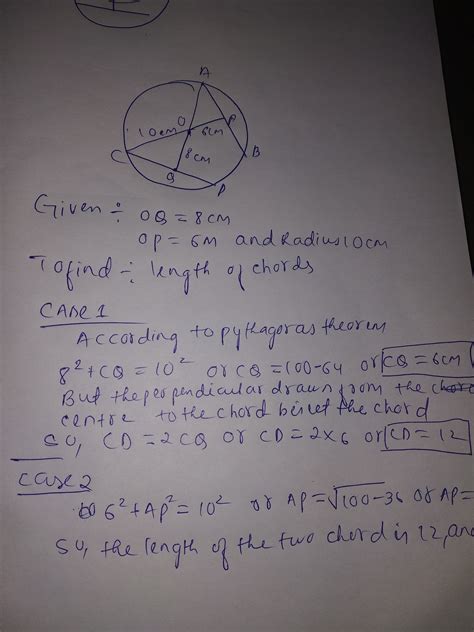 A
10cm
O
6cm
P
C
8cm
B
Q
D
Given ÷ OQ = 8cm
OP = 6M and Radius 10cm
Tofind ÷ length of chords
CASE 1
According to pythagoras theorem
8² + CQ = 10² or CQ = 100-64 or CQ = 6cm
But the perpendicular drawn from the
centre to the chord bisect the chord
SO, CD = 2CQ or CD = 2x6 or CD = 12
Case 2
6² + AP² = 10² or AP = √100-36 or AP =
SO, the length of the two chord is 12, and